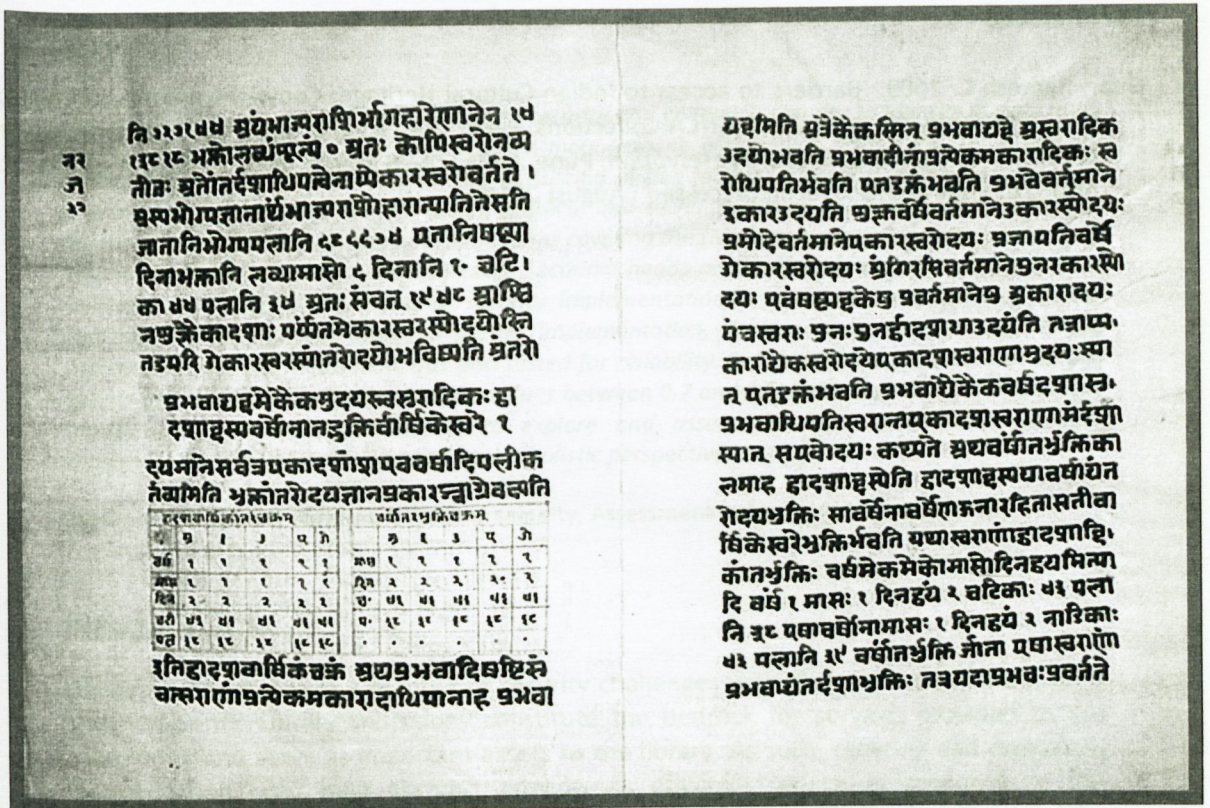 नि २२२१४४ अयंभाज्यराशिर्भागहारेणानेन १४
११८१८ भक्तोलब्धंपूर्त्य ० अतः कोपिस्वरोनव्य
नर
जे
२२
तीतः अतोंतर्दशाधिपत्वेनाप्येकारस्वरोवर्तते ।
अस्यभोग्यज्ञानार्थभाज्यराशेर्हारात्पातितेसति
जातानिभोग्यपलानि एतानिषष्ट्या
दिनाभक्तानि लब्धामासो ९ दिनानि १० घटि।
का ४४ पलानि ३४ अतः संवत् १९४८ आश्वि
नशुक्लैकादश्याः पर्यंतमेकारस्वरस्योदयोस्ति
तडपरि ओकारस्वरस्यांतरोदयोभविष्यति अंतरो
प्रभवाद्यब्दमेकैकमुदयस्त्वस्वरादिकः द्वा
दशाब्दस्यवर्षोनातद्भुक्तिर्वार्षिकेस्वरे १
दयमानेसर्वत्रएकादशांशएववर्षादिपलीक
तेव्यमिति भुक्तांतरोदयज्ञानप्रकारस्त्वाग्रेवक्ष्यति
द्वादशवार्षिकांतरचक्रम् वर्षांतरभुक्तिचक्रम्
अ इ उ ए ओ अ इ उ ए ओ
वर्ष १ १ १ १ १ मास १ १ १ १ १
मास १ १ १ १ १ दिन २ २ २ २ २
दिन २ २ २ २ २ घ॰ ४३ ४३ ४३ ४३ ४३
घटी ४३ ४३ ४३ ४३ ४३ प॰ ३८ ३८ ३८ ३८ ३८
पल ३८ ३८ ३८ ३८ ३८
इतिद्वादशवार्षिकंचक्रं अथप्रभवादिषष्टिसं
वत्सराणांप्रत्येकमकारादाधिपानाह प्रभवा
द्यब्दमिति अत्रैकैकस्मिन् प्रभवाद्यब्दे अस्वरादिक
उदयोभवति प्रभवादीनांप्रत्येकमकारादिकः स्व
रोधिपतिर्भवति एतडक्तंभवति प्रभवेवर्तमाने
इकारउदयति शुक्लवर्षेवर्तमानेउकारस्योदयः
प्रमोदेवर्तमानेएकारस्वरोदयः प्रजापतिवर्षे
ओकारस्वरोदयः अंगिरसिवर्तमानेपुनरकारस्यो
दयः एवंषष्ट्यब्दकेषु प्रवर्तमानेषु अकारादयः
पंचस्वराः पुनःपुनर्द्वादशधाउदयंति तत्राप्य
काराद्येकस्वरोदयेएकादशस्वराणामुदयःस्या
त् एतडक्तंभवति प्रभवाद्येकैकवर्षदशासु
प्रभवाधिपतिस्वरान्तएकादशस्वराणामंर्दशा
स्यात् सएवोदयः कथ्यते अथवर्षांतर्भुक्तिका
लमाह द्वादशाब्दस्येति द्वादशाब्दस्यथावर्षांत
रोदयभुक्तिः सावर्षेनावर्षेणऊनारहितासतीवा
र्षिकेस्वरेभुक्तिर्भवति यथास्वराणांद्वादशाब्दि
कांतर्भुक्तिः वर्षमेकमेकोमासोदिनद्वयमित्या
दि वर्ष १ मासः १ दिनद्वयं २ घटिकाः ४३ पला
नि ३८ एषावर्षोनामासः १ दिनद्वयं २ नाडिकाः
४३ पलानि ३९ वर्षांतर्भुक्ति र्जाता एषास्वराणां
प्रभवाद्यंतर्दशाभुक्तिः तत्रयदाप्रभवःप्रवर्तते